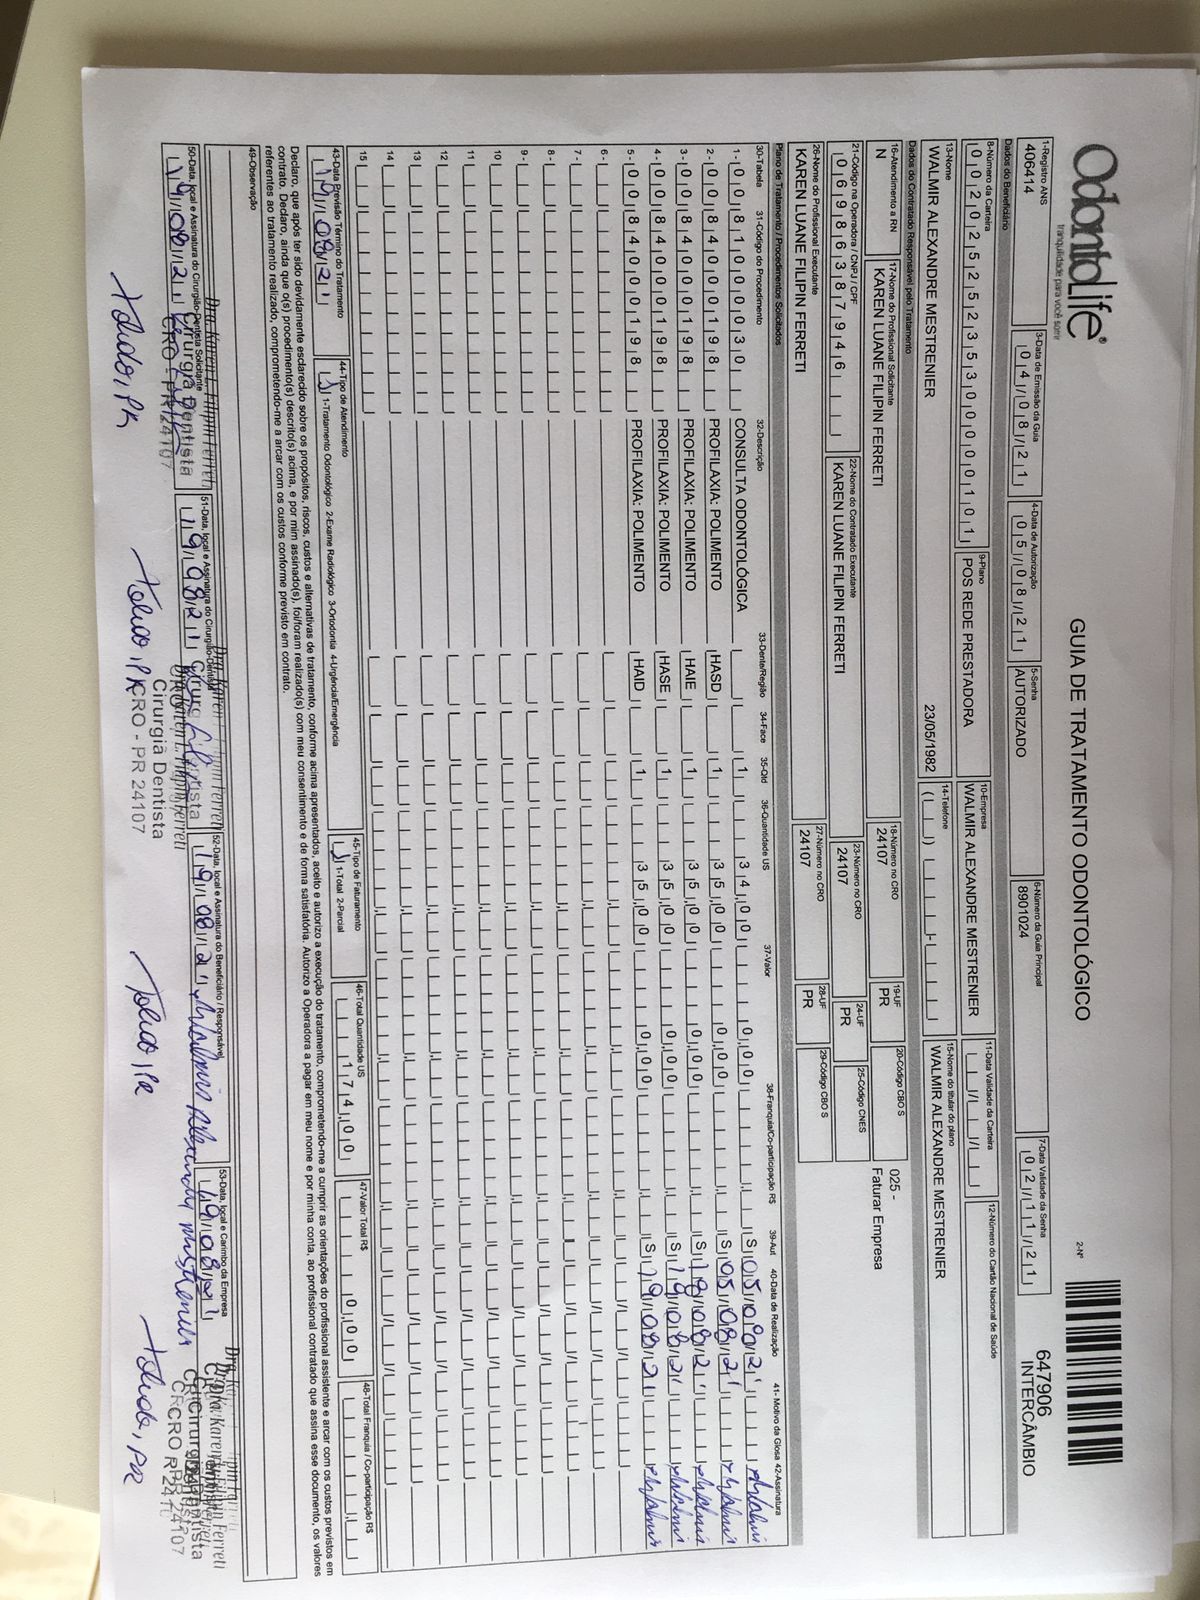 OdontoLife®
tranquilidade para você sorrir
GUIA DE TRATAMENTO ODONTOLÓGICO
2-Nº
647906
INTERCÂMBIO
1-Registro ANS
406414
3-Data de Emissão da Guia
04/08/21
4-Data de Autorização
05/08/21
5-Senha
AUTORIZADO
6-Número da Guia Principal
8901024
7-Data Validade da Senha
02/11/21
Dados do Beneficiário
8-Número da Carteira
00202525235300000101
9-Plano
POS REDE PRESTADORA
10-Empresa
WALMIR ALEXANDRE MESTRENIER
11-Data Validade da Carteira
12-Número do Cartão Nacional de Saúde
13-Nome
WALMIR ALEXANDRE MESTRENIER 23/05/1982
14-Telefone
15-Nome do titular do plano
WALMIR ALEXANDRE MESTRENIER
Dados do Contratado Responsável pelo Tratamento
16-Atendimento a RN
N
17-Nome do Profissional Solicitante
KAREN LUANE FILIPIN FERRETI
18-Número no CRO
24107
19-UF
PR
20-Código CBO S
025 -
Faturar Empresa
21-Código na Operadora / CNPJ / CPF
06986387946
22-Nome do Contratado Executante
KAREN LUANE FILIPIN FERRETI
23-Número no CRO
24107
24-UF
PR
25-Código CNES
26-Nome do Profissional Executante
KAREN LUANE FILIPIN FERRETI
27-Número no CRO
24107
28-UF
PR
29-Código CBO S
Plano de Tratamento / Procedimentos Solicitados
30-Tabela 31-Código do Procedimento 32-Descrição 33-Dente/Região 34-Face 35-Qtd 36-Quantidade US 37-Valor 38-Franquia/Co-participação R$ 39-Aut 40-Data de Realização 41- Motivo da Glosa 42-Assinatura
1- 00 81000030 CONSULTA ODONTOLÓGICA 1 34,00 0,00 S 05/08/21 Walmir
2- 00 84000198 PROFILAXIA: POLIMENTO HASD 1 35,00 0,00 S 05/08/21 Walmir
3- 00 84000198 PROFILAXIA: POLIMENTO HAIE 1 35,00 0,00 S 19/08/21 Walmir
4- 00 84000198 PROFILAXIA: POLIMENTO HASE 1 35,00 0,00 S 19/08/21 Walmir
5- 00 84000198 PROFILAXIA: POLIMENTO HAID 1 35,00 0,00 S 19/08/21 Walmir
6-
7-
8-
9-
10
11
12
13
14
15
43-Data Previsão Término do Tratamento
19/08/21
44-Tipo de Atendimento
1 1-Tratamento Odontológico 2-Exame Radiológico 3-Ortodontia 4-Urgência/Emergência
45-Tipo de Faturamento
1 1-Total 2-Parcial
46-Total Quantidade US
174,00
47-Valor Total R$
0,00
48-Total Franquia / Co-participação R$
Declaro, que após ter sido devidamente esclarecido sobre os propósitos, riscos, custos e alternativas de tratamento, conforme acima apresentados, aceito e autorizo a execução do tratamento, comprometendo-me a cumprir as orientações do profissional assistente e arcar com os custos previstos em
contrato. Declaro, ainda que o(s) procedimento(s) descrito(s) acima, e por mim assinado(s), foi/foram realizado(s) com meu consentimento e de forma satisfatória. Autorizo a Operadora a pagar em meu nome e por minha conta, ao profissional contratado que assina esse documento, os valores
referentes ao tratamento realizado, comprometendo-me a arcar com os custos conforme previsto em contrato.
49-Observação
50-Data, local e Assinatura do Cirurgião-Dentista Solicitante
19/08/21
Dra. Karen L. Filipin Ferreti
Cirurgiã Dentista
CRO - PR 24107
Toledo, PR
51-Data, local e Assinatura do Cirurgião-Dentista
19/08/21
Dra. Karen L. Filipin Ferreti
Cirurgiã Dentista
CRO - PR 24107
Toledo, PR
52-Data, local e Assinatura do Beneficiário / Responsável
19/08/21 Walmir Alexandre Mestrenier
Toledo, PR
53-Data, local e Carimbo da Empresa
19/08/21
Dra. Karen L. Filipin Ferreti
Cirurgiã Dentista
CRO - PR 24107
Toledo, PR